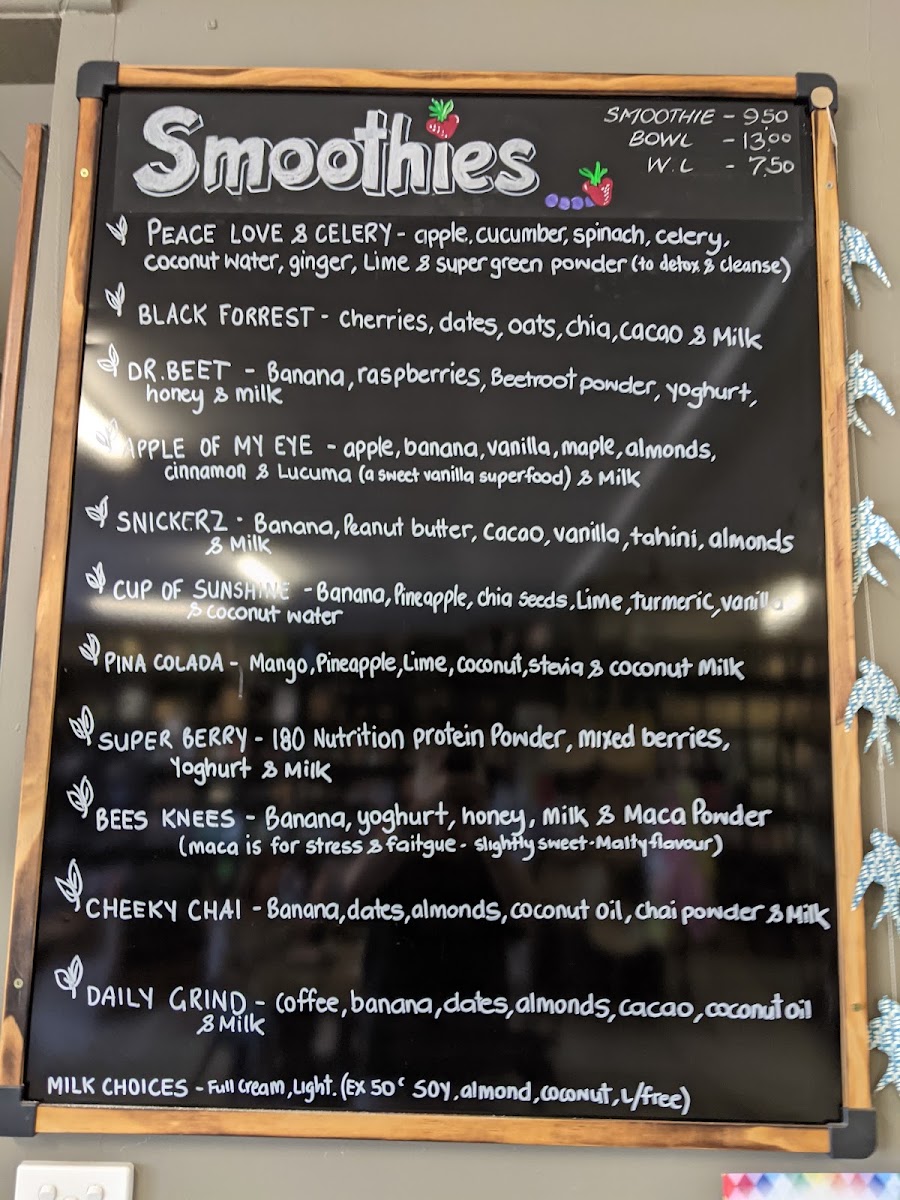 Smoothies
SMOOTHIE - 9.50
BOWL - 13.00
W.L - 7.50
PEACE LOVE & CELERY - apple, cucumber, spinach, celery,
coconut water, ginger, Lime & super green powder (to detox & cleanse)
BLACK FORREST - cherries, dates, oats, chia, cacao & Milk
DR. BEET - Banana, raspberries, Beetroot powder, yoghurt,
honey & milk
APPLE OF MY EYE - apple, banana, vanilla, maple, almonds,
cinnamon & Lucuma (a sweet vanilla superfood) & Milk
SNICKERZ - Banana, Peanut butter, cacao, vanilla, tahini, almonds
& Milk
CUP OF SUNSHINE - Banana, Pineapple, chia seeds, Lime, Turmeric, vanilla
& coconut water
PINA COLADA - Mango, Pineapple, Lime, coconut, stevia & coconut Milk
SUPER BERRY - 180 Nutrition protein Powder, mixed berries,
Yoghurt & Milk
BEES KNEES - Banana, yoghurt, honey, Milk & Maca Powder
(maca is for stress & faitgue - slightly sweet-Malty flavour)
CHEEKY CHAI - Banana, dates, almonds, coconut oil, chai powder & Milk
DAILY GRIND - coffee, banana, dates, almonds, cacao, coconut oil
& Milk
MILK CHOICES - Full cream, Light. (EX 50c SOY, almond, coconut, L/free)